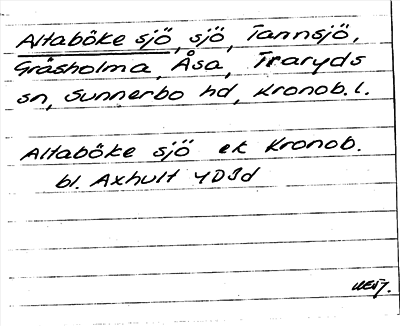 Altaböke sjö, sjö, Tannsjö,
Gräsholma, Åsa, Traryds
sn, Sunnerbo hd, Kronob. l.
Altaböke sjö ek Kronob.
bl. Axhult 4D3d